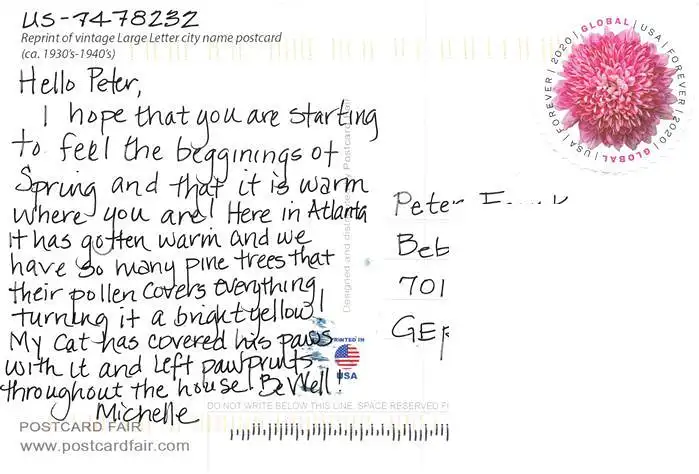 US-7478232
Reprint of vintage Large Letter city name postcard
(ca. 1930's-1940's)
Hello Peter,
I hope that you are starting
to feel the begginings of
Spring and that it is warm
where you are! Here in Atlanta
it has gotten warm and we
have so many pine trees that
their pollen covers everything
turning it a bright yellow!
My cat has covered his paws
with it and left pawprints
throughout the house! Be Well!
Michelle
POSTCARD FAIR
www.postcardfair.com
Designed and distributed by Postcard Fair
PRINTED IN
USA
DO NOT WRITE BELOW THIS LINE. SPACE RESERVED
GLOBAL | USA | FOREVER | 2020 | GLOBAL | USA | FOREVER | 2020
Peter
Beb
701
GER